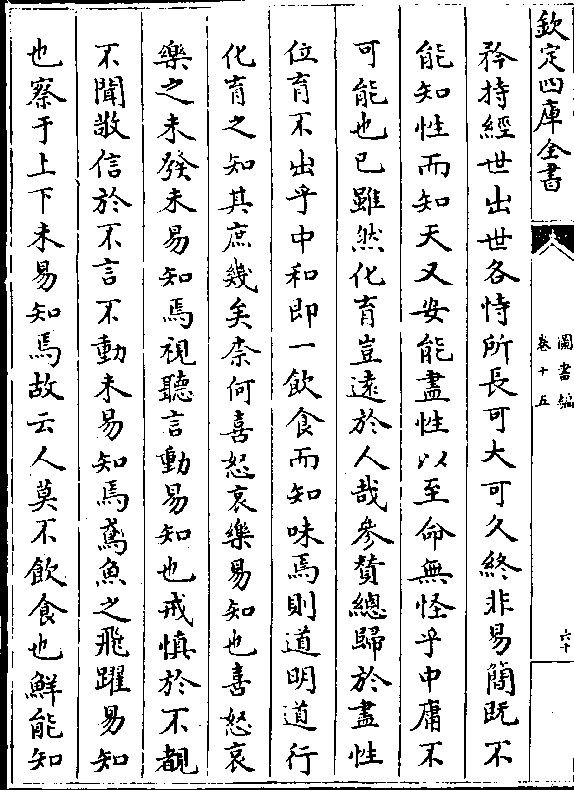 欽定四庫全書
圖書編
卷十五
六十
矜持經世出世各恃所長可大可久終非易簡既不
能知性而知天又安能盡性以至命無怪乎中庸不
可能也已雖然化育豈遠於人哉參贊總歸於盡性
位育不出乎中和即一飲食而知味焉則道明道行
化育之知其庶幾矣柰何喜怒哀樂易知也喜怒哀
樂之未發未易知焉視聽言動易知也戒慎於不覩
不聞敬信於不言不動未易知焉鳶魚之飛躍易知
也察于上下未易知焉故云人莫不飲食也鮮能知